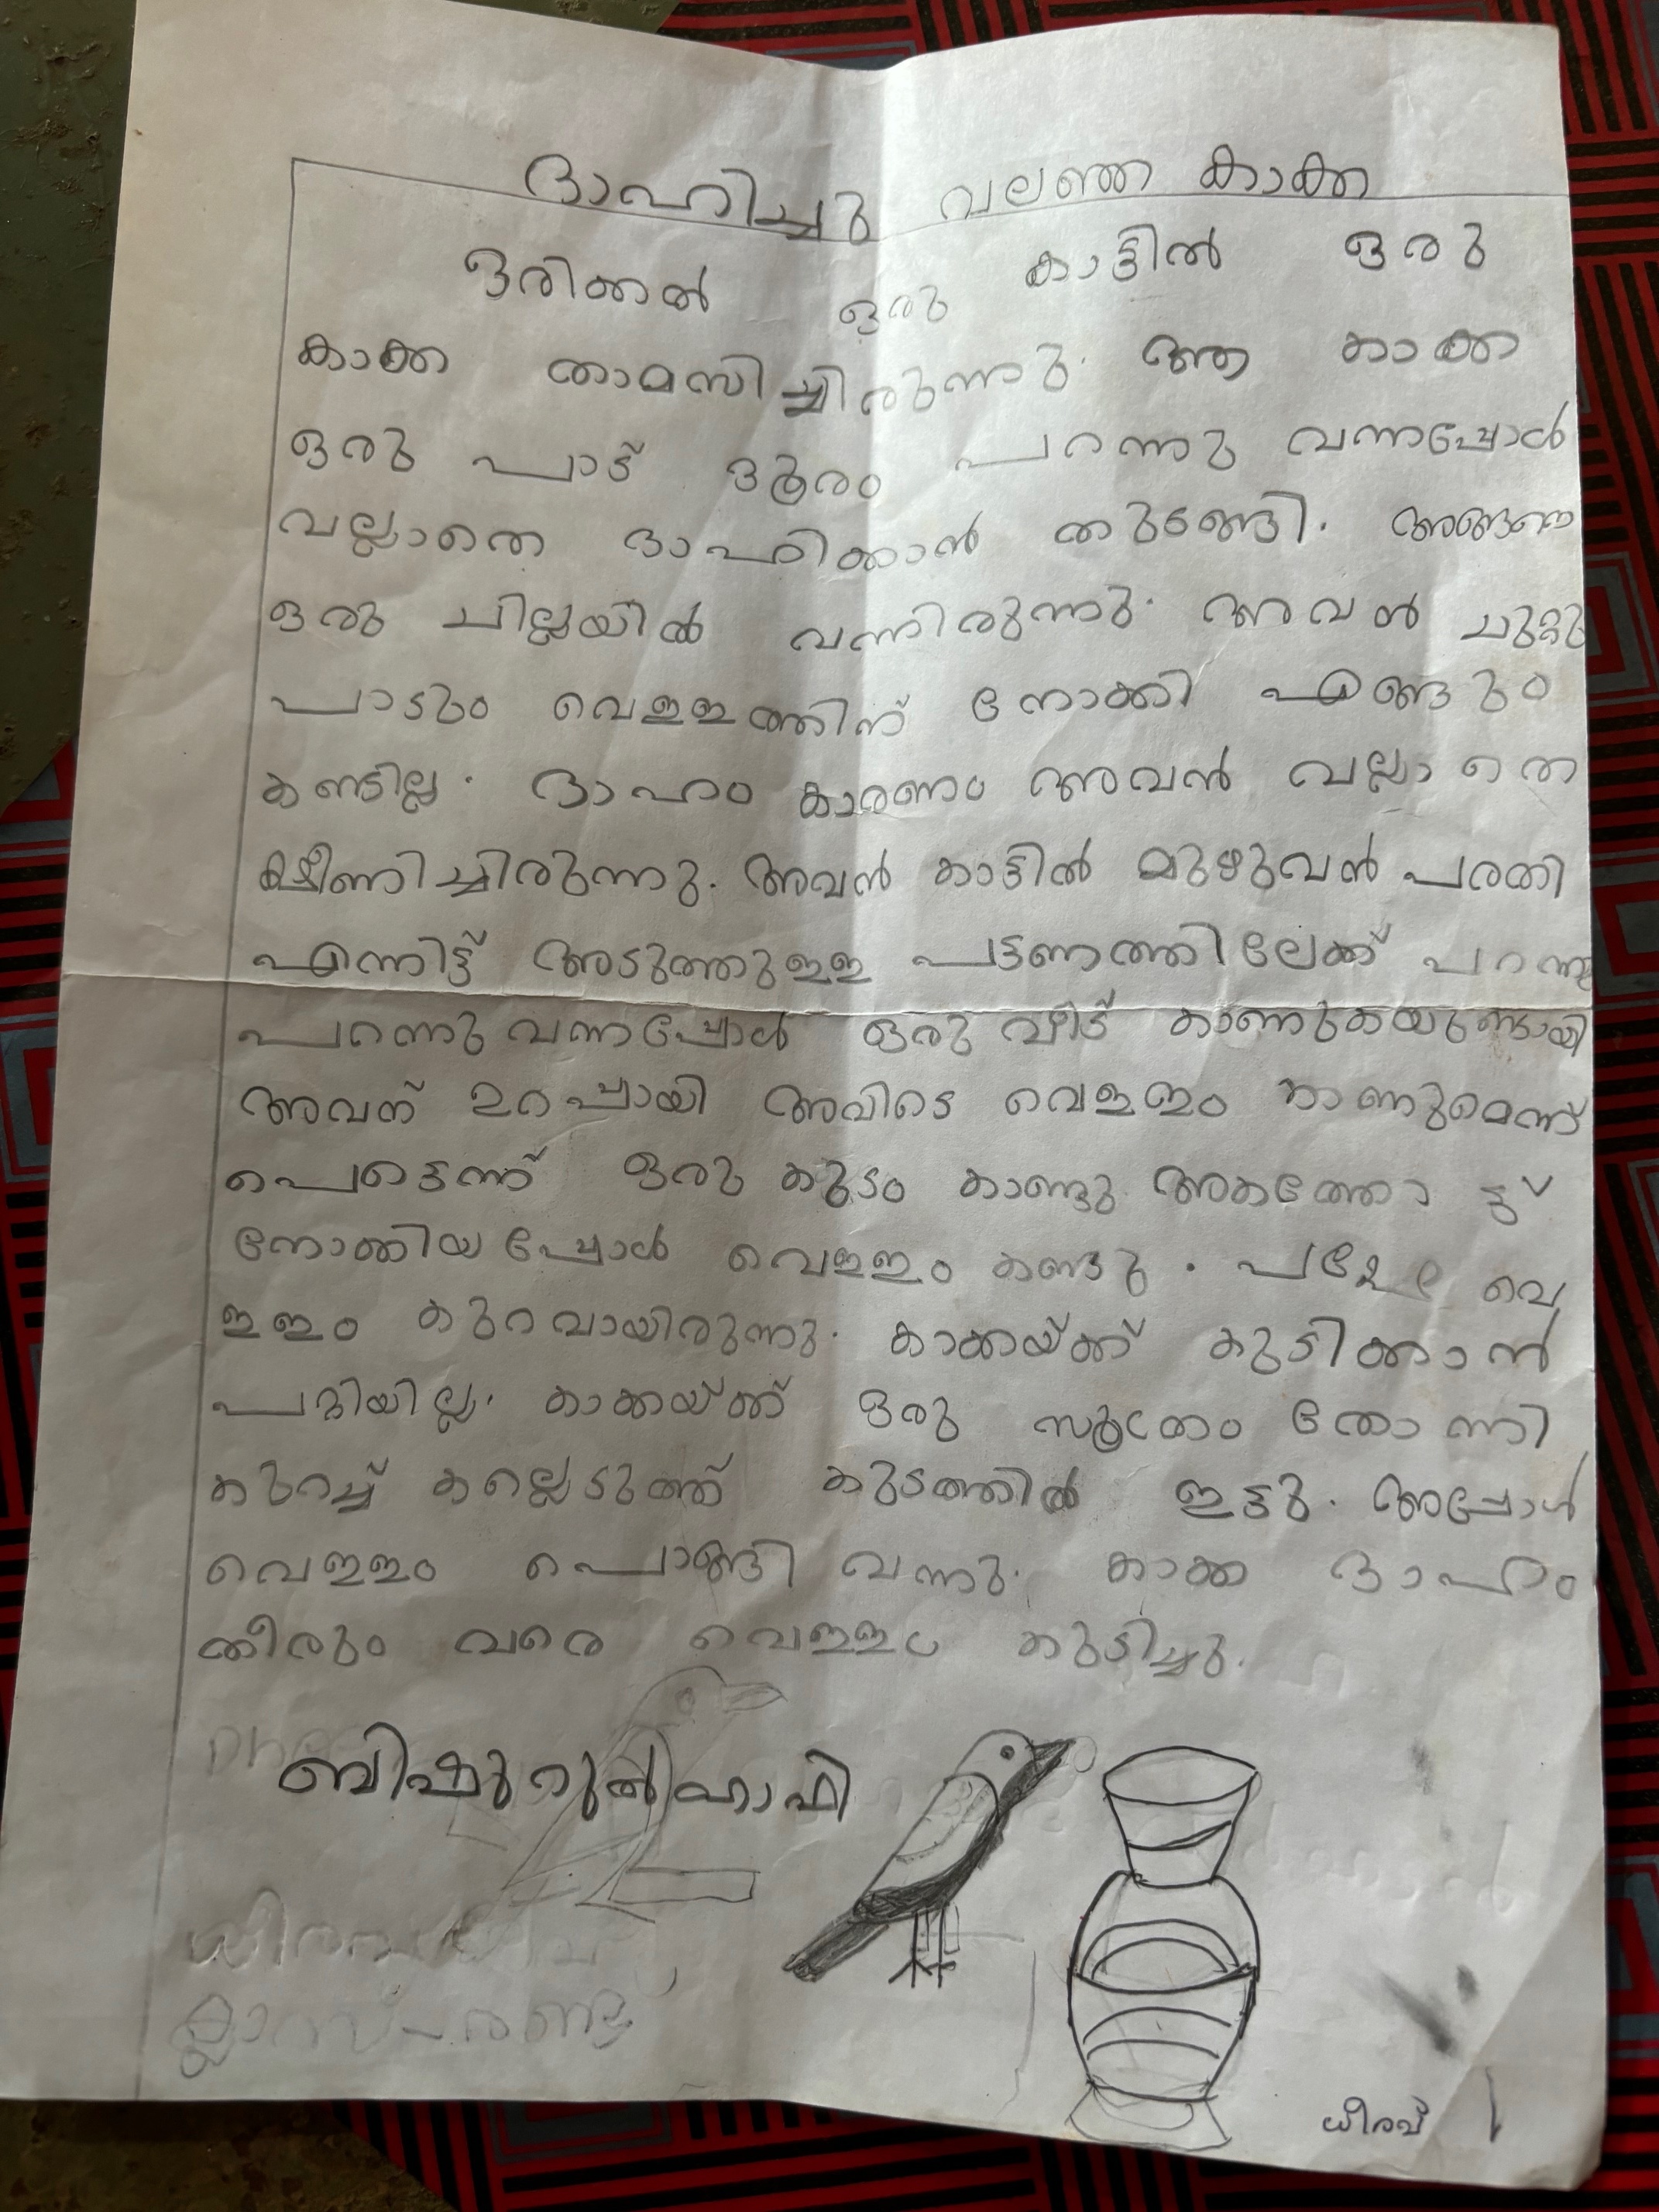 ദാഹിച്ചു വലഞ്ഞ കാക്ക
ഒരിക്കൽ ഒരു കാട്ടിൽ ഒരു
കാക്ക താമസിച്ചിരുന്നു. ആ കാക്ക
ഒരു പാട് ദൂരം പറന്നു വന്നപ്പോൾ
വല്ലാതെ ദാഹിക്കാൻ തുടങ്ങി. അങ്ങനെ
ഒരു ചില്ലയിൽ വന്നിരുന്നു. അവൻ ചുറ്റു
പാടും വെളളത്തിന് നോക്കി എങ്ങും
കണ്ടില്ല. ദാഹം കാരണം അവൻ വല്ലാതെ
ക്ഷീണിച്ചിരുന്നു. അവൻ കാട്ടിൽ മുഴുവൻ പരതി
എന്നിട്ട് അടുത്തുളള പട്ടണത്തിലേക്ക് പറന്നു
പറന്നു വന്നപ്പോൾ ഒരു വീട് കാണുകയുണ്ടായി
അവന് ഉറപ്പായി അവിടെ വെളളം കാണുമെന്ന്
പെട്ടെന്ന് ഒരു കുടം കണ്ടു അകത്തോട്ട്
നോക്കിയപ്പോൾ വെളളം കണ്ടു. പക്ഷേ വെ
ളളം കുറവായിരുന്നു. കാക്കയ്ക്ക് കുടിക്കാൻ
പറ്റിയില്ല. കാക്കയ്ക്ക് ഒരു സൂത്രം തോന്നി
കുറച്ച് കല്ലെടുത്ത് കുടത്തിൽ ഇട്ടു. അപ്പോൾ
വെളളം പൊങ്ങി വന്നു. കാക്ക ദാഹം
തീരും വരെ വെളളം കുടിച്ചു.
ബിഷുറുൽഹാഫി
ക്ലാസ് - രണ്ട്
ധീരവ്